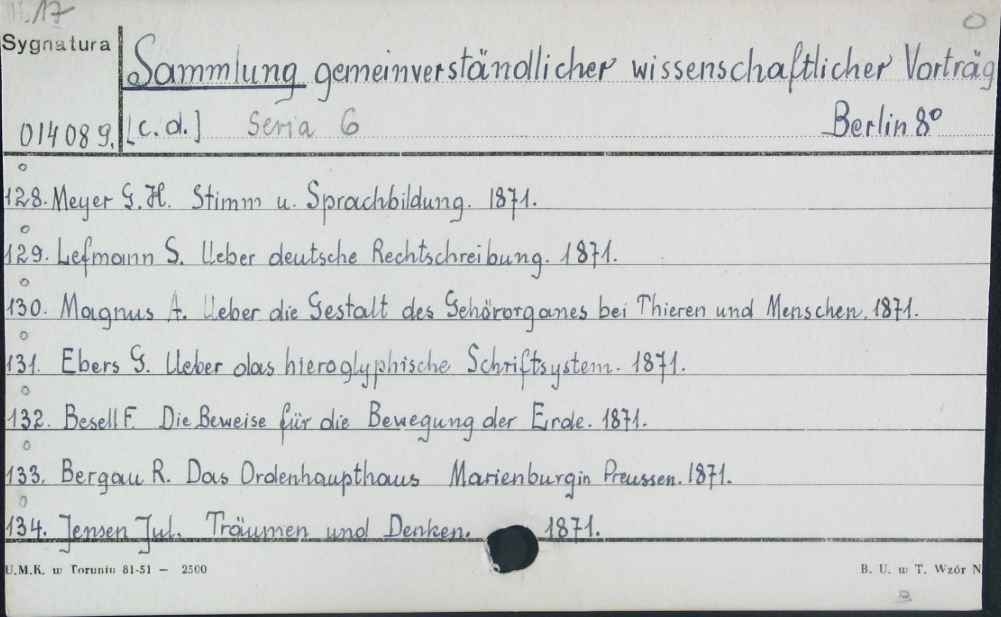 II.17
Sygnatura
Sammlung gemeinverständlicher wissenschaftlicher Vorträg
014089. [c.d.] Seria 6 Berlin 8°
128. Meyer G.H. Stimm u. Sprachbildung. 1871.
129. Lefmann S. Ueber deutsche Rechtschreibung. 1871.
130. Magnus A. Ueber die Gestalt des Gehörorganes bei Thieren und Menschen. 1871.
131. Ebers G. Ueber das hieroglyphische Schriftsystem. 1871.
132. Besell F. Die Beweise für die Bewegung der Erde. 1871.
133. Bergau R. Das Ordenhaupthaus Marienburg in Preussen. 1871.
134. Jensen Jul. Träumen und Denken. 1871.
U.M.K. w Toruniu 81-51 — 2500 B. U. w T. Wzór N